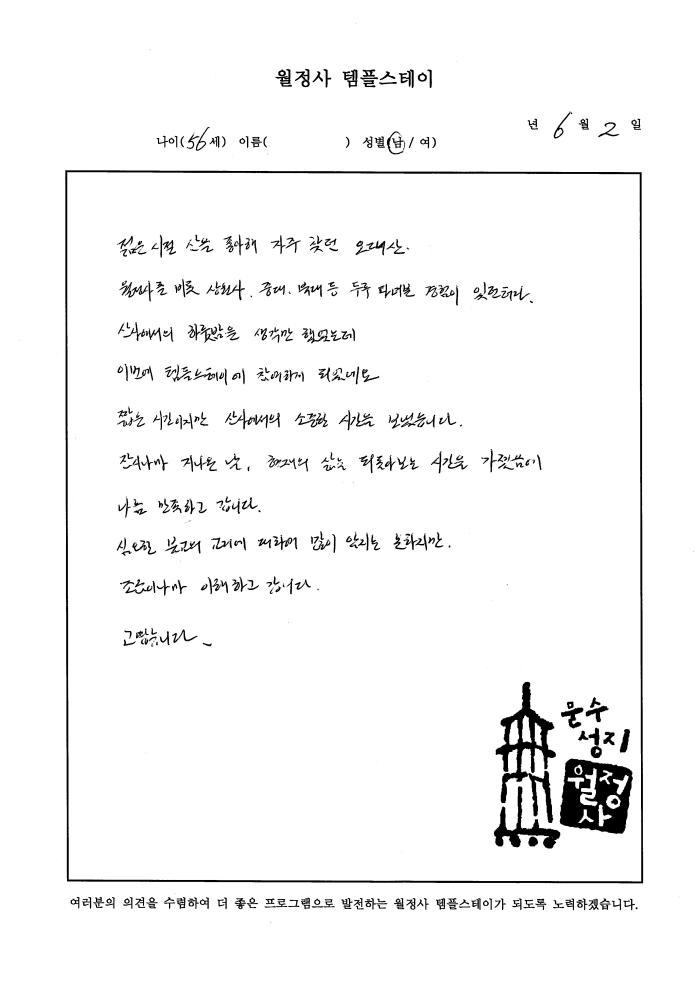 월정사 템플스테이
년 6 월 2 일
나이(56세) 이름( ) 성별(남/여)
젊은시절 산을 통해 자주 찾던 오대산.
월정사를 비롯 상원사. 중대. 북대 등 두루 다녀본 경험이 있던터라.
산사에서의 하룻밤을 생각만 했었는데
이번에 템플스테이에 참여하게 되었네요
짧은 시간이지만 산사에서의 소중한 시간을 보냈습니다.
잠시나마 지나온 날, 현재의 삶을 되돌아보는 시간을 가졌음에
나름 만족하고 갑니다.
심오한 불교의 교리에 대하여 많이 알지는 못하지만.
조금이나마 이해하고 갑니다.
고맙습니다
문수
성지
월정
사
여러분의 의견을 수렴하여 더 좋은 프로그램으로 발전하는 월정사 템플스테이가 되도록 노력하겠습니다.